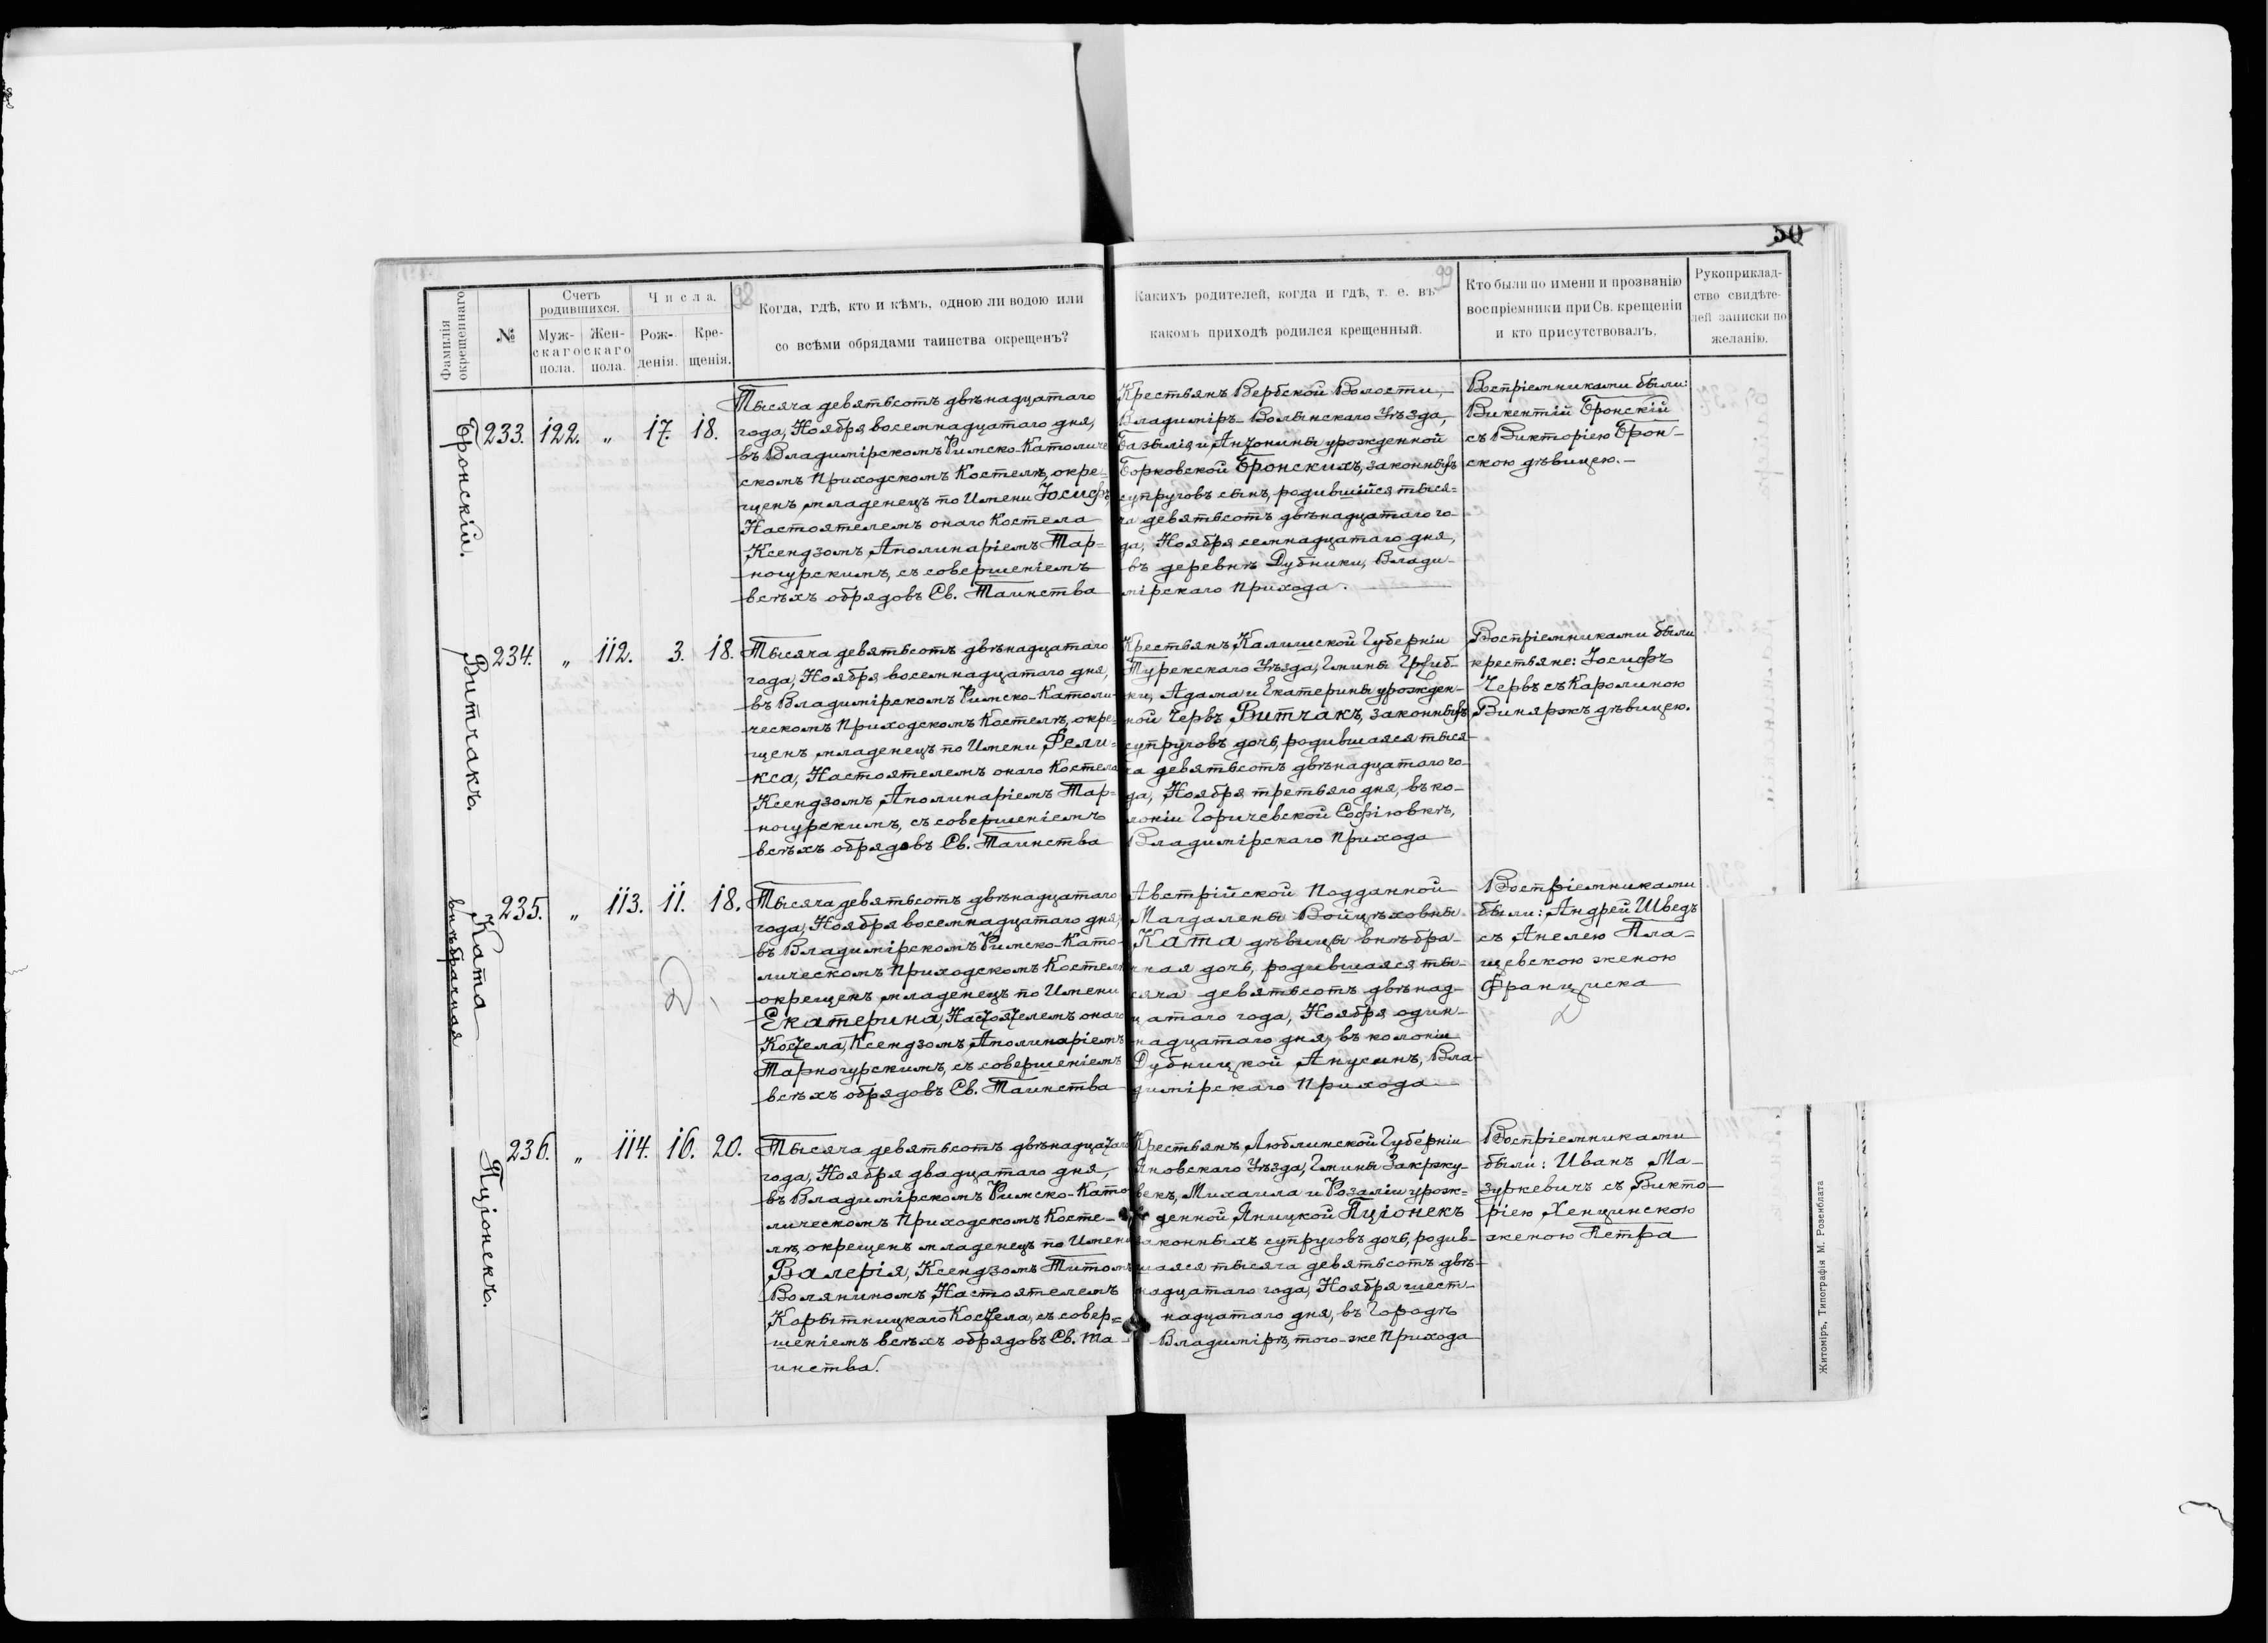 50
98
99
Фамилія окрещеннаго.
№
Счетъ родившихся.
Мужскаго пола.
Женскаго пола.
Числа.
Рожденія.
Крещенія.
Когда, гдѣ, кто и кѣмъ, одною ли водою или
со всѣми обрядами таинства окрещенъ?
Какихъ родителей, когда и гдѣ, т. е. въ
какомъ приходѣ родился крещенный.
Кто были по имени и прозванію
воспріемники при Св. крещеніи
и кто присутствовалъ.
Рукоприклад-
ство свидѣте-
лей записки по
желанію.
Бронскій.
233. 122. „ 17. 18.
Тысяча девятьсотъ двѣнадцатаго
года, Ноября восемнадцатаго дня,
въ Владимірскомъ Римско-Католиче
скомъ Приходскомъ Костелѣ, окре-
щенъ младенецъ по Имени Іосифъ,
Настоятелемъ онаго Костела
Ксендзомъ Аполинаріемъ Тар=
ногурскимъ, съ совершеніемъ
всѣхъ обрядовъ Св. Таинства
Крестьянъ Вербской Волости,
Владиміръ-Волынскаго Уѣзда,
Базылія и Антонины урожденной
Борковской Бронскихъ, законныхъ
супруговъ сынъ, родившійся тыся=
ча девятьсотъ двѣнадцатаго го-
да, Ноября семнадцатаго дня,
въ деревнѣ Дубники, Влади-
мірскаго Прихода.
Воспріемниками были:
Викентій Бронскій
съ Викторіею Брон-
скою дѣвицею.-
Витчакъ.
234. „ 112. 3. 18.
Тысяча девятьсотъ двѣнадцатаго
года, Ноября восемнадцатаго дня,
въ Владимірскомъ Римско-Католи-
ческомъ Приходскомъ Костелѣ, окре=
щенъ младенецъ по Имени Фели=
кса, Настоятелемъ онаго Костела
Ксендзомъ Аполинаріемъ Тар=
ногурскимъ, съ совершеніемъ
всѣхъ обрядовъ Св. Таинства
Крестьянъ Калишской Губерніи
Турекскаго Уѣзда, Гмины
ки, Адама и Екатерины урожден-
ной Червъ Витчакъ, законныхъ
супруговъ дочь, родившаяся тыся-
ча девятьсотъ двѣнадцатаго го-
да, Ноября третьяго дня, въ ко-
лоніи Горичевской Софіювкѣ,
Владимірскаго Прихода
Воспріемниками были
крестьяне: Іосифъ
Червъ съ Каролиною
Виняржъ дѣвицею.
Ката
внѣбрачная
235. „ 113. 11. 18.
Тысяча девятьсотъ двѣнадцатаго
года, Ноября восемнадцатаго дня,
въ Владимірскомъ Римско-Като-
лическомъ Приходскомъ Костелѣ
окрещенъ младенецъ по Имени
Екатерина, Настоятелемъ онаго
Костела, Ксендзомъ Аполинаріемъ
Тарногурскимъ, съ совершеніемъ
всѣхъ обрядовъ Св. Таинства
Австрійской Подданной
Магдалены Войцѣховны
Ката дѣвицы внѣбра-
чная дочь, родившаяся ты-
сяча девятьсотъ двѣнад-
цатаго года, Ноября один-
надцатаго дня, въ колоніи
Дубницкой Анусинъ, Вла-
димірскаго Прихода
Воспріемниками
были: Андрей Шведъ
съ Анелею Пла-
щевскою женою
Франциска
Пціонекъ.
236. „ 114. 16. 20.
Тысяча девятьсотъ двѣнадцатаго
года, Ноября двадцатаго дня,
въ Владимірскомъ Римско-Като
лическомъ Приходскомъ Косте-
лѣ, окрещенъ младенецъ по Имени
Валерія, Ксендзомъ Титомъ
Воляниномъ, Настоятелемъ
Корытницкаго Костела, съ совер=
шеніемъ всѣхъ обрядовъ Св. Та-
инства.
Крестьянъ Люблинской Губерніи
Яновскаго Уѣзда, Гмины Закржу-
векъ, Михаила и Розаліи урож=
денной Яницкой Пціонекъ
законныхъ супруговъ дочь, родив-
шаяся тысяча девятьсотъ двѣ-
надцатаго года, Ноября шест-
надцатаго дня, въ Городѣ
Владимірѣ, того-же Прихода
Воспріемниками
были: Иванъ Ма-
зуркевичъ съ Викто-
ріею Хенцинскою
женою Петра
Житоміръ, Типографія М. Розенблата